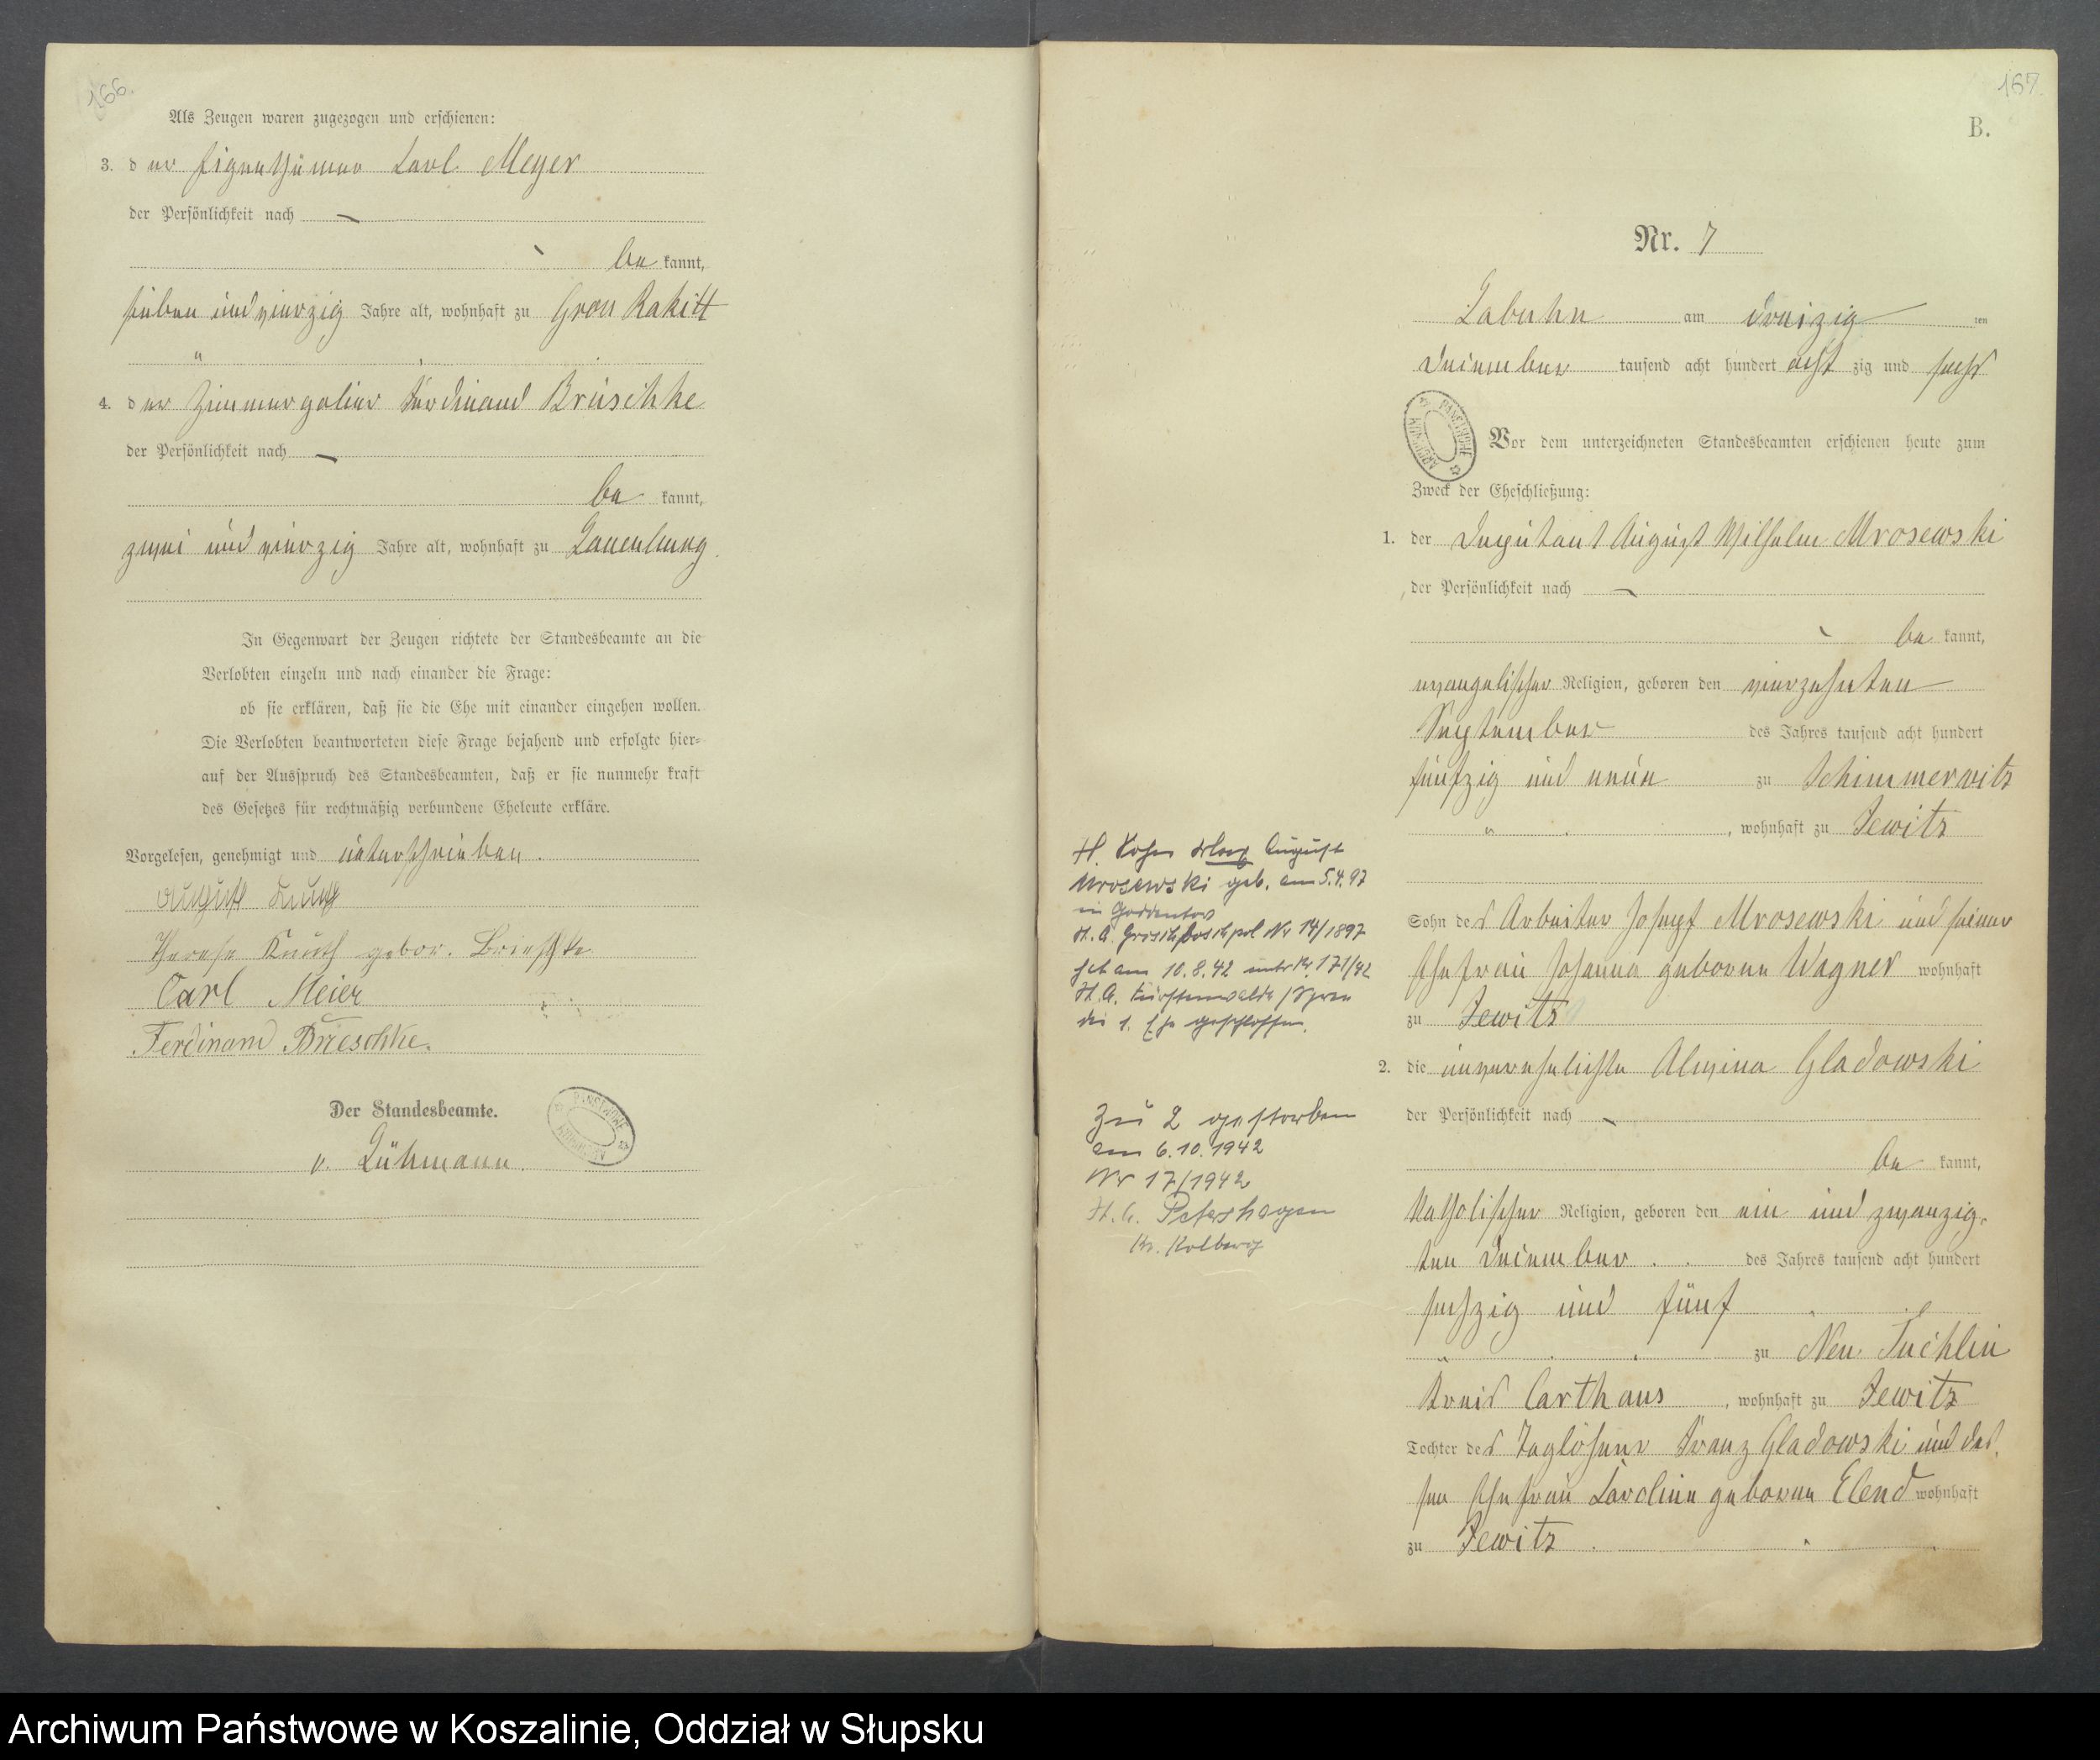 166.
Als Zeugen waren zugezogen und erschienen:
3. der Eigenthümer Carl Meyer
der Persönlichkeit nach —
be kannt,
sieben und vierzig Jahre alt, wohnhaft zu Gross Rakitt
4. der Zimmergeselle Ferdinand Brüschke
der Persönlichkeit nach —
be kannt,
zwei und vierzig Jahre alt, wohnhaft zu Lauenburg
In Gegenwart der Zeugen richtete der Standesbeamte an die
Verlobten einzeln und nach einander die Frage:
ob sie erklären, daß sie die Ehe mit einander eingehen wollen.
Die Verlobten beantworteten diese Frage bejahend und erfolgte hier-
auf der Ausspruch des Standesbeamten, daß er sie nunmehr kraft
des Gesetzes für rechtmäßig verbundene Eheleute erkläre.
Vorgelesen, genehmigt und unterschrieben.
August
Therese Knuth gebor. Brieschke
Carl Meier
Ferdinand Brieschke.
Der Standesbeamte.
v. Lühmann.
167.
B.
Nr. 7
Labuhn am dreizig ten
Dezember tausend acht hundert acht zig und sechs
Vor dem unterzeichneten Standesbeamten erschienen heute zum
Zweck der Eheschließung:
1. der Deputant August Wilhelm Mrosewski
der Persönlichkeit nach —
be kannt,
evangelischer Religion, geboren den vierzehnten
September des Jahres tausend acht hundert
fünfzig und neun zu Schimmerwitz
, wohnhaft zu Jewitz
Sohn des Arbeiter Joseph Mrosewski und seiner
Ehefrau Johanna geborene Wagner wohnhaft
zu Jewitz
2. die unverehelichte Alwina Gladowski
der Persönlichkeit nach —
be kannt,
katholischer Religion, geboren den ein und zwanzig-
ten Dezember des Jahres tausend acht hundert
sechzig und fünf
zu Neu Tuchlin
Kreis Carthaus, wohnhaft zu Jewitz
Tochter des Taglöhner Franz Gladowski und des-
sen Ehefrau Caroline geborene Elend wohnhaft
zu Jewitz
H. Sohn August
Mrosewski geb. am 5.4.97
in Goddentow
St. A. Nr 14/1897
hat am 10.8.42 unter Nr. 171/42
St. A. Fürstenwalde/Spree
die 1. Ehe geschlossen.
Zu 2 gestorben
am 6.10.1942
Nr 17/1942
St. A. Petershagen
Kr. Kolberg
Archiwum Państwowe w Koszalinie, Oddział w Słupsku